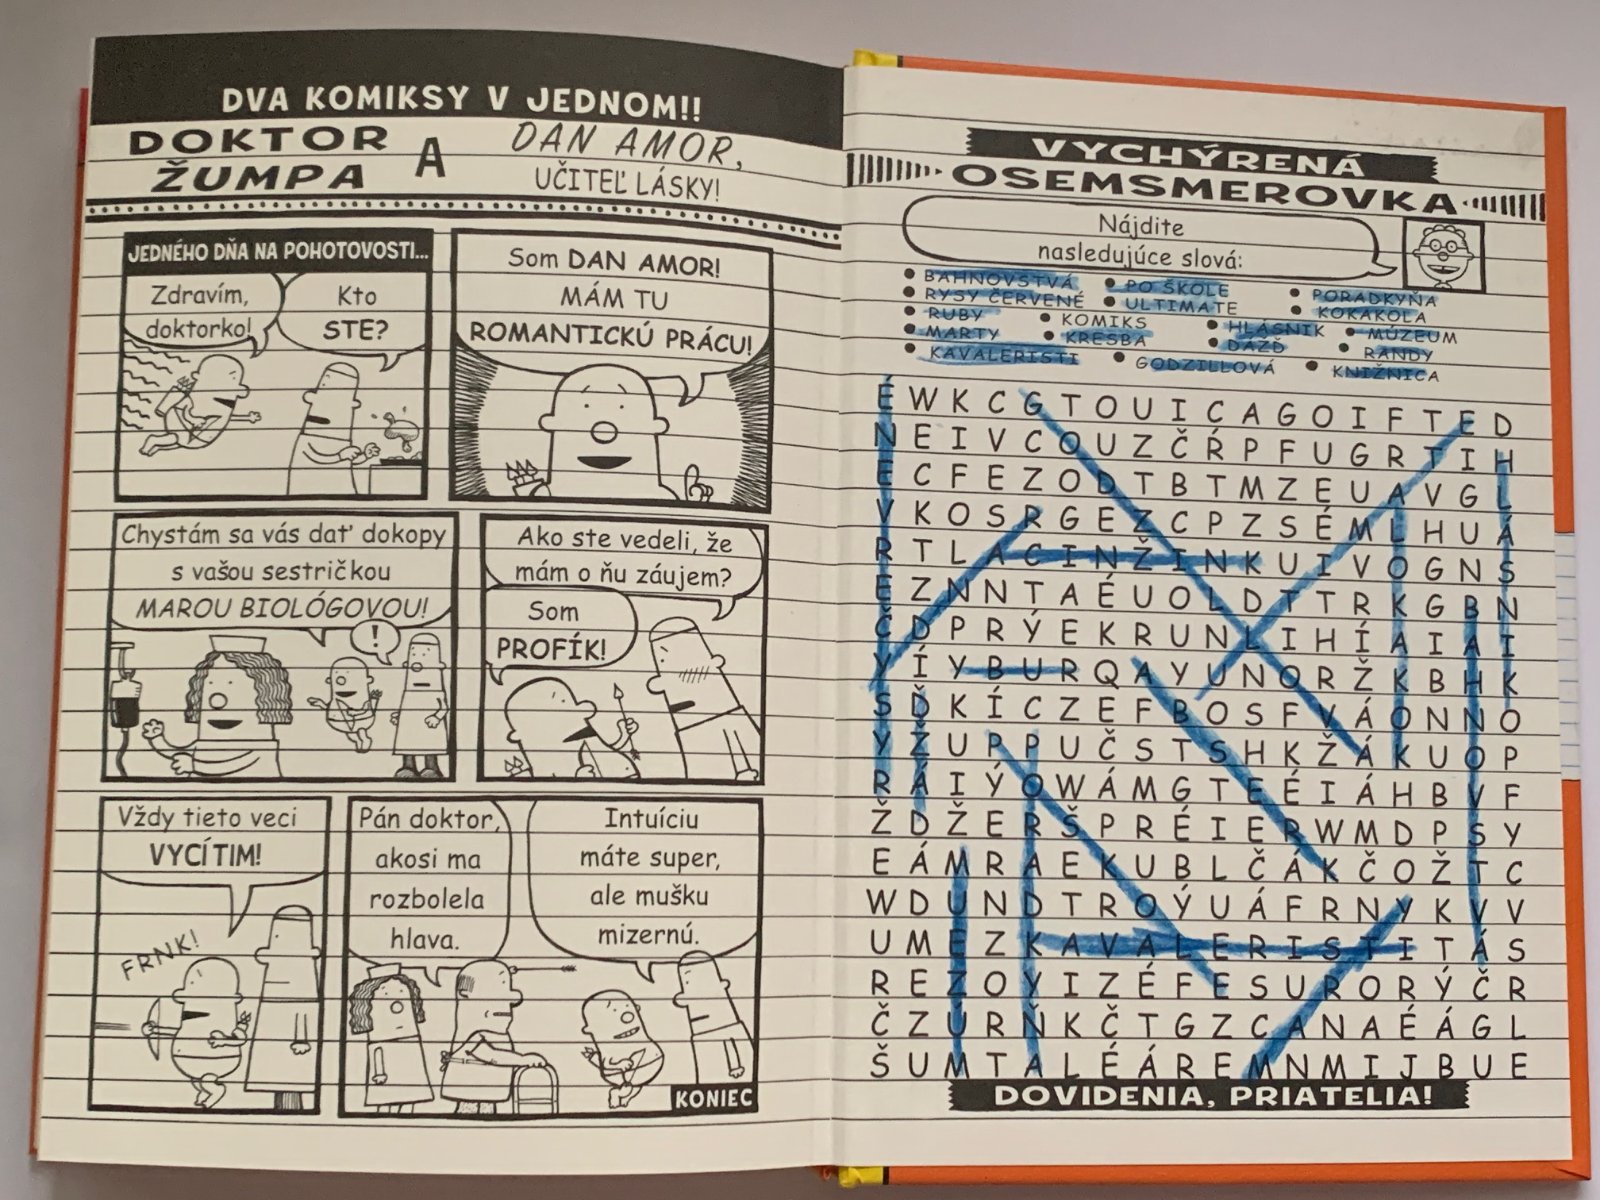 DVA KOMIKSY V JEDNOM!!
DOKTOR ŽUMPA
A
DAN AMOR,
UČITEĽ LÁSKY!
JEDNÉHO DŇA NA POHOTOVOSTI...
Zdravím,
doktorko!
Kto
STE?
Som DAN AMOR!
MÁM TU
ROMANTICKÚ PRÁCU!
Chystám sa vás dať dokopy
s vašou sestričkou
MAROU BIOLÓGOVOU!
!
Ako ste vedeli, že
mám o ňu záujem?
Som
PROFÍK!
Vždy tieto veci
VYCÍTIM!
FRNK!
Pán doktor,
akosi ma
rozbolela
hlava.
Intuíciu
máte super,
ale mušku
mizernú.
KONIEC
VYCHÝRENÁ
OSEMSMEROVKA
Nájdite
nasledujúce slová:
• BAHNOVSTVÁ • PO ŠKOLE • PORADKYŇA
• RYSY ČERVENÉ • ULTIMATE • KOKAKOLA
• RUBY • KOMIKS • HLÁSNIK • MÚZEUM
• MARTY • KRESBA • DÁŽĎ • RANDY
• KAVALERISTI • GODZILLOVÁ • KNIŽNICA
É W K C G T O U I C A G O I F T E D
N E I V C O U Z Č Ŕ P F U G R T I H
E C F E Z O D T B T M Z E U A V G L
V K O S R G E Z C P Z S É M L H U Á
R T L A C I N Ž I N K U I V O G N S
E Z N N T A É U O L D T T R K G B N
Č D P R Ý E K R U N L I H Í A I A I
Y Í Y B U R Q A Y U N O R Ž K B H K
S Ď K Í C Z E F B O S F V Á O N N O
Y Ž U P P U Č S T S H K Ž Á K U O P
R Á I Ý O W Á M G T E É I Á H B V F
Ž D Ž E R Š P R É I E R W M D P S Y
E Á M R A E K U B L Č Á K Č O Ž T C
W D U N D T R O Ý U Á F R N Y K V V
U M E Z K A V A L E R I S T I T Á S
R E Z O Y I Z É F E S U R O R Ý Č R
Č Z U R Ň K Č T G Z C A N A É Á G L
Š U M T A L É Á R E M N M I J B U E
DOVIDENIA, PRIATELIA!